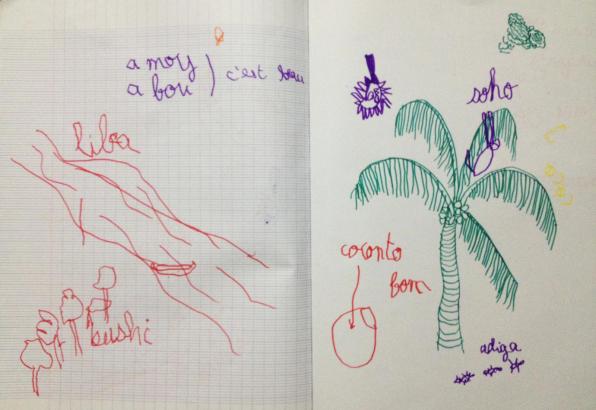 a moy
a bou
c'est beau
liba
bushi
soho
coconto
bom
adiga